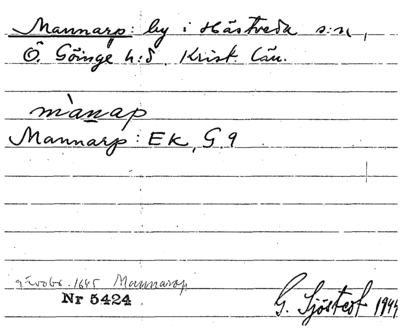 Mannarp: by i Hästveda s:n,
Ö. Göinge h:d. Krist. län.
mànap
Mannarp: EK, G.9
1645 Mannarp
Nr 5424
G. Sjöstedt 1944